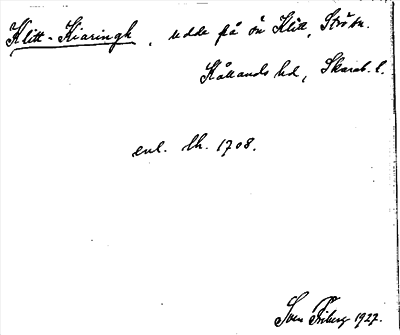 Klitt-Kiaringh, udde på ön Klitt, Strö sn.
Kållands hd, Skarab. l.
enl. lh. 1708.
Sven Friberg 1927.